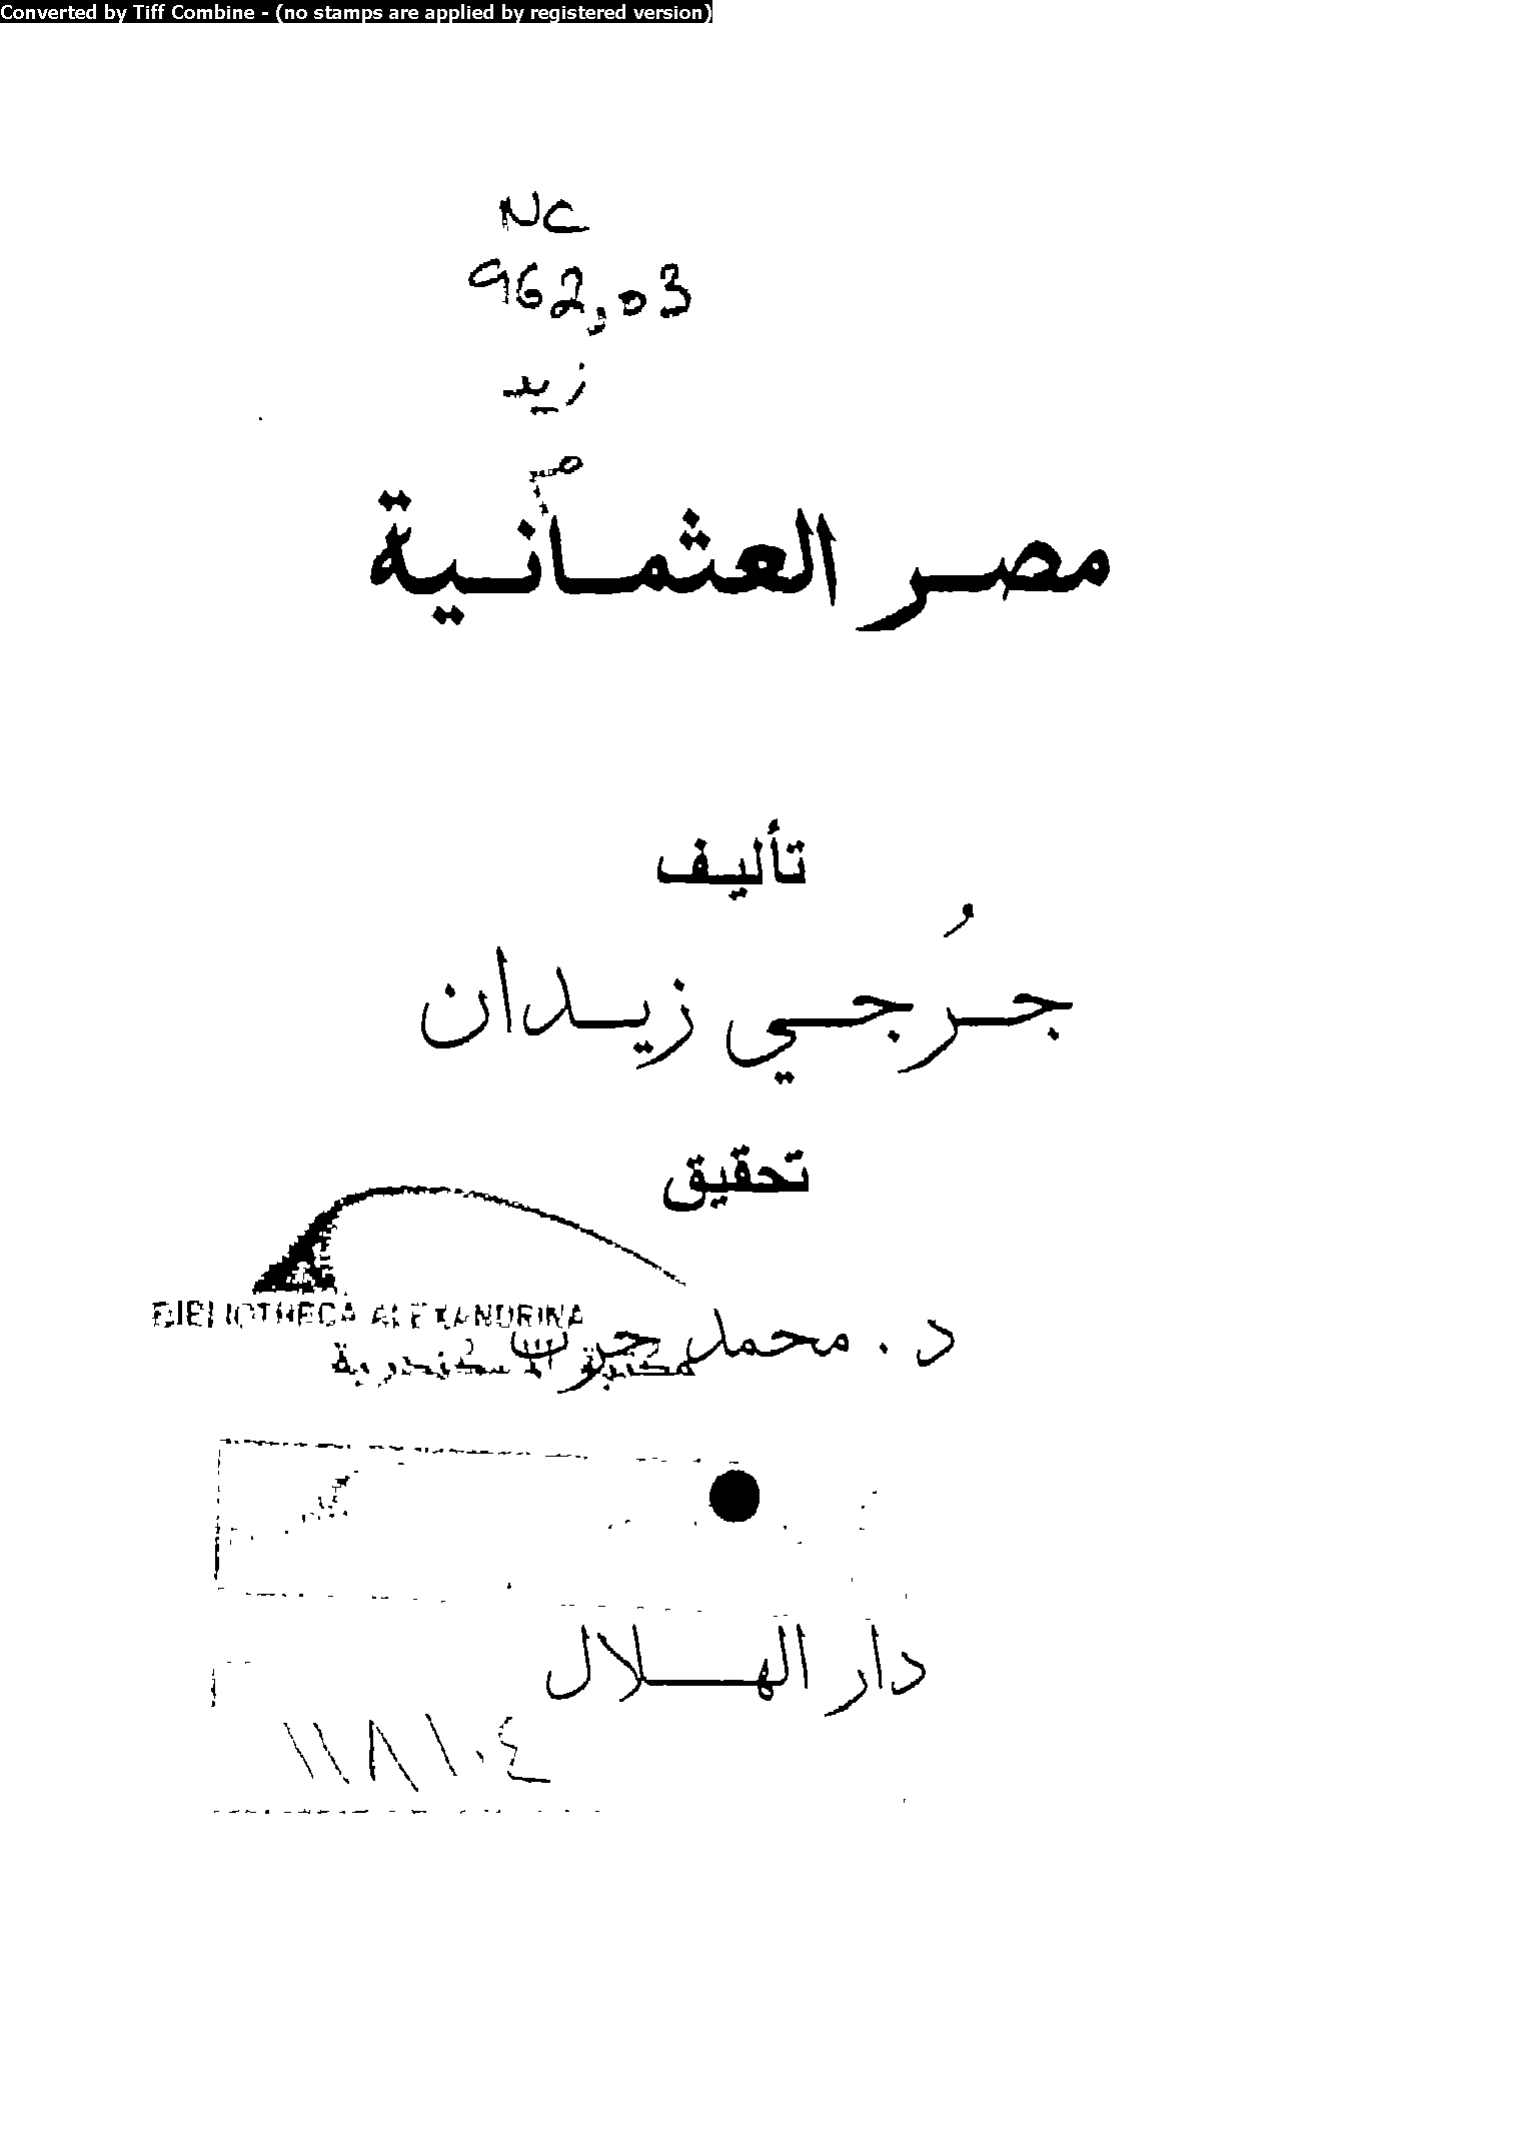 Converted by Tiff Combine - (no stamps are applied by registered version)
NC
962,03
زيد
مصر العثمانية
تأليف
جُرجي زيدان
تحقيق
BIBLIOTHECA ALEXANDRINA
د. محمد حرب
مكتبة الاسكندرية
دار الهلال
١١٨١٠٤